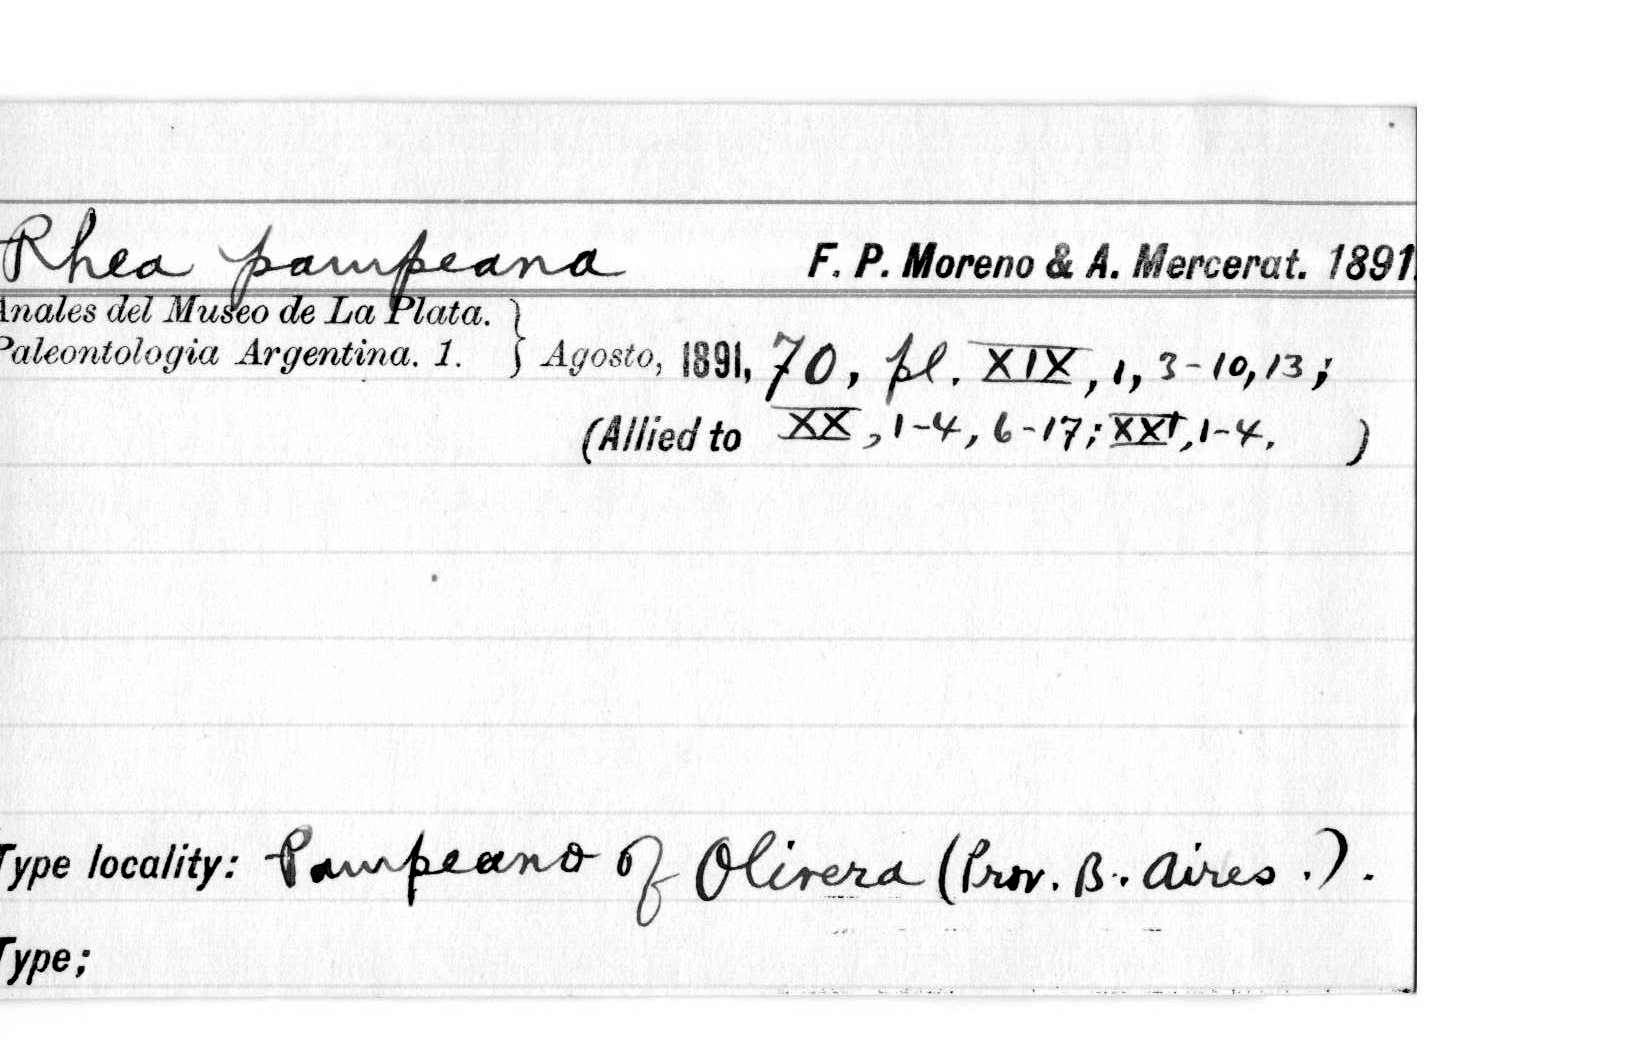 Rhea pampeana F. P. Moreno & A. Mercerat. 1891.
Anales del Museo de La Plata. }
Paleontologia Argentina. 1. } Agosto, 1891, 70, pl. XIX, 1, 3-10, 13;
(Allied to XX, 1-4, 6-17; XXI, 1-4. )
Type locality: Pampeano of Olivera (Prov. B. Aires.).
Type;